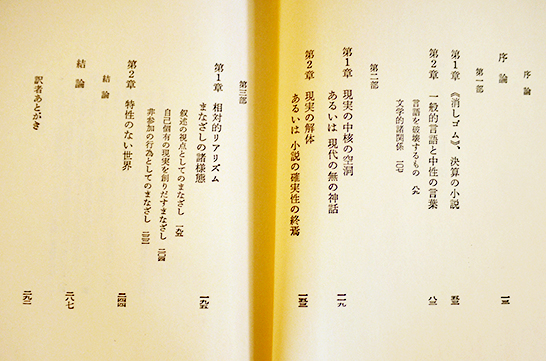 序論
序論 一三
第一部
第1章 《消しゴム》、決算の小説 五三
第2章 一般的言語と中性の言葉 八三
言語を破壊するもの 八六
文学的諸関係 一〇七
第二部
第1章 現実の中核の空洞
あるいは 現代の無の神話 一一九
第2章 現実の解体
あるいは 小説の確実性の終焉 一五三
第三部
第1章 相対的リアリズム
まなざしの諸様態 一九五
叙述の視点としてのまなざし 一九五
自己固有の現実を創りだすまなざし 二〇四
非参加の行為としてのまなざし 二三一
第2章 特性のない世界 二四四
結論
結論 二八七
訳者あとがき 二九二